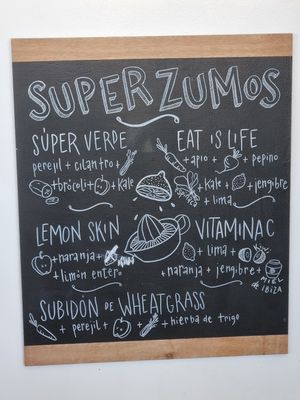 SUPER ZUMOS
SÚPER VERDE
perejil + cilantro +
+ brócoli + + kale
EAT IS LIFE
+ apio + + pepino
+ kale + + jengibre
+ lima
LEMON SKIN
+ naranja +
+ limón entero
VITAMINA C
+ lima +
+ naranja + jengibre +
MIEL
de
IBIZA
SUBIDÓN DE WHEATGRASS
+ perejil + + + hierba de trigo